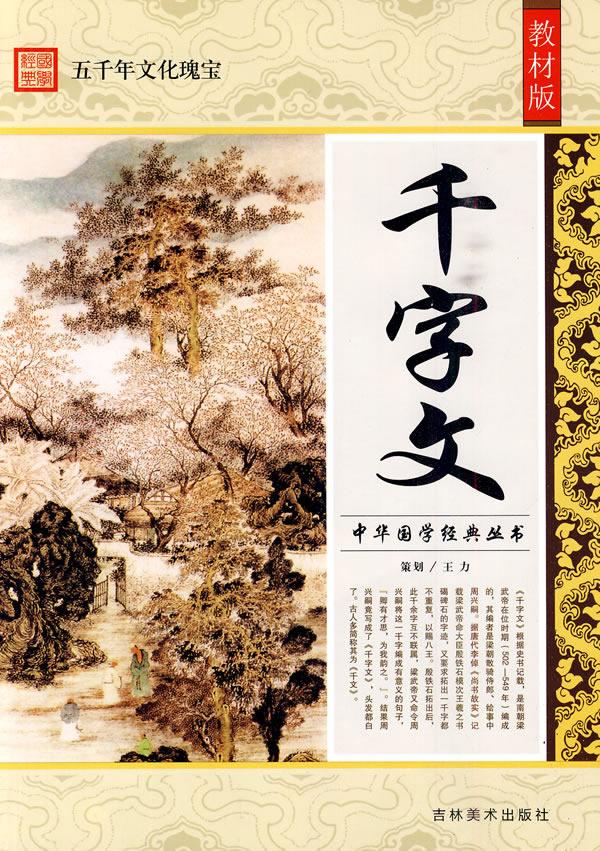 國學
經典
五千年文化瑰宝
教材版
千字文
中华国学经典丛书
策划/王力
《千字文》根据史书记载，是南朝梁
武帝在位时期（502—549年）编成
的，其编者是梁朝散骑侍郎、给事中
周兴嗣。据唐代李倬《尚书故实》记
载梁武帝命大臣殷铁石模次王羲之书
碣碑石的字迹，又要求拓出一千字都
不重复，以赐八王。殷铁石拓出后，
此千余字互不联属，梁武帝又命令周
兴嗣将这一千字编成有意义的句子，
“卿有才思，为我韵之。”。结果周
兴嗣竟写成了《千字文》，头发都白
了。古人多简称其为《千文》。
吉林美术出版社